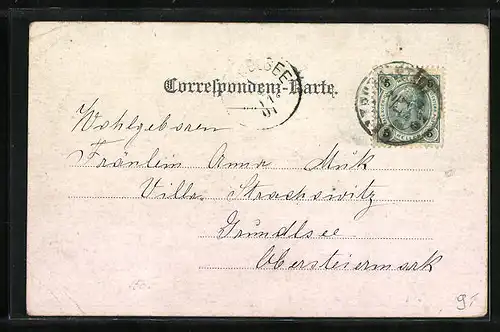 Correspondenz-Karte.
Wohlgeboren
Fräulein Anna Mik
Villa Strachwitz
Grundlsee
Obersteiermark
9.-